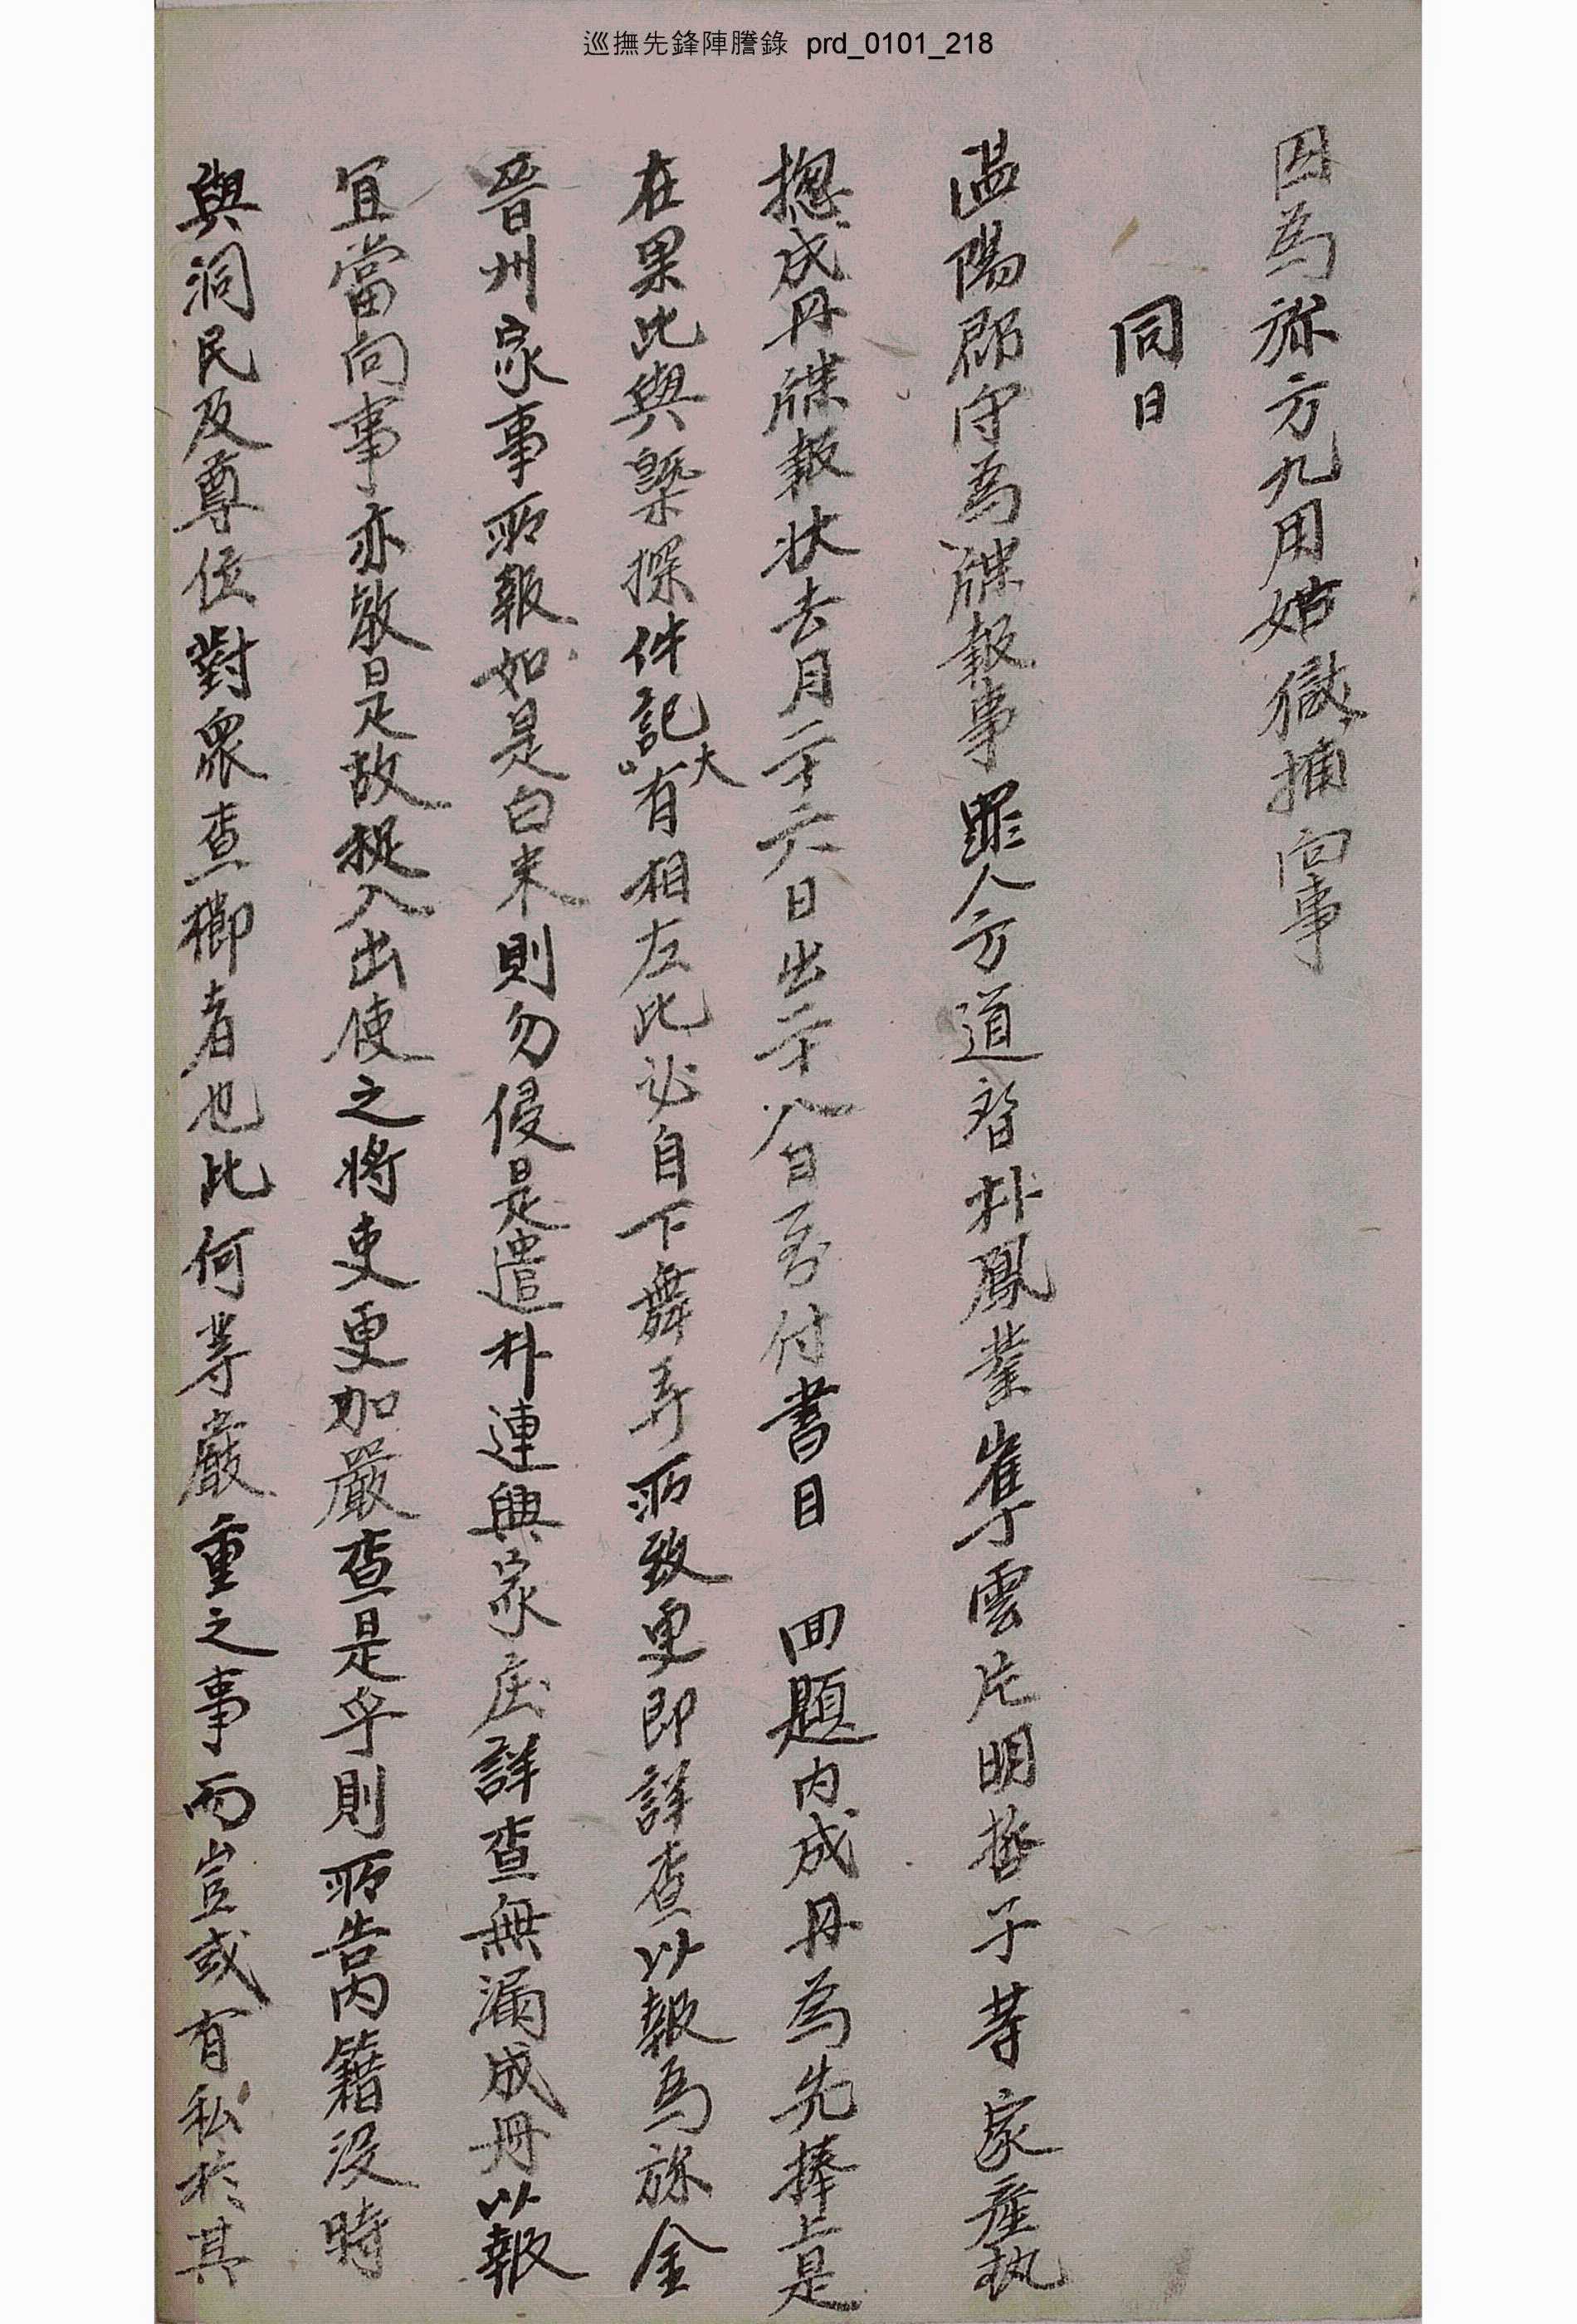 巡撫先鋒陣謄錄 prd_0101_218
囚爲㫆方九用姑徐捕向事
同日
温陽郡守爲牒報事罪人方道智朴鳳業崔雲片明哲子等家產執
摠成冊牒報狀去月二十六日出二十八日到付書目 回題內成冊爲先捧上是
在果此與槩探件記大有相左此必自下舞弄所致更卽詳查以報爲㫆金
晉州家事所報如是白來則勿侵是遣朴連興家庄詳查無漏成冊以報
宜當向事亦敎是故捉入出使之將吏更加嚴查是乎則所告內籍沒時
與洞民及尊位對衆查櫛者也此何等嚴重之事而豈或有私於其